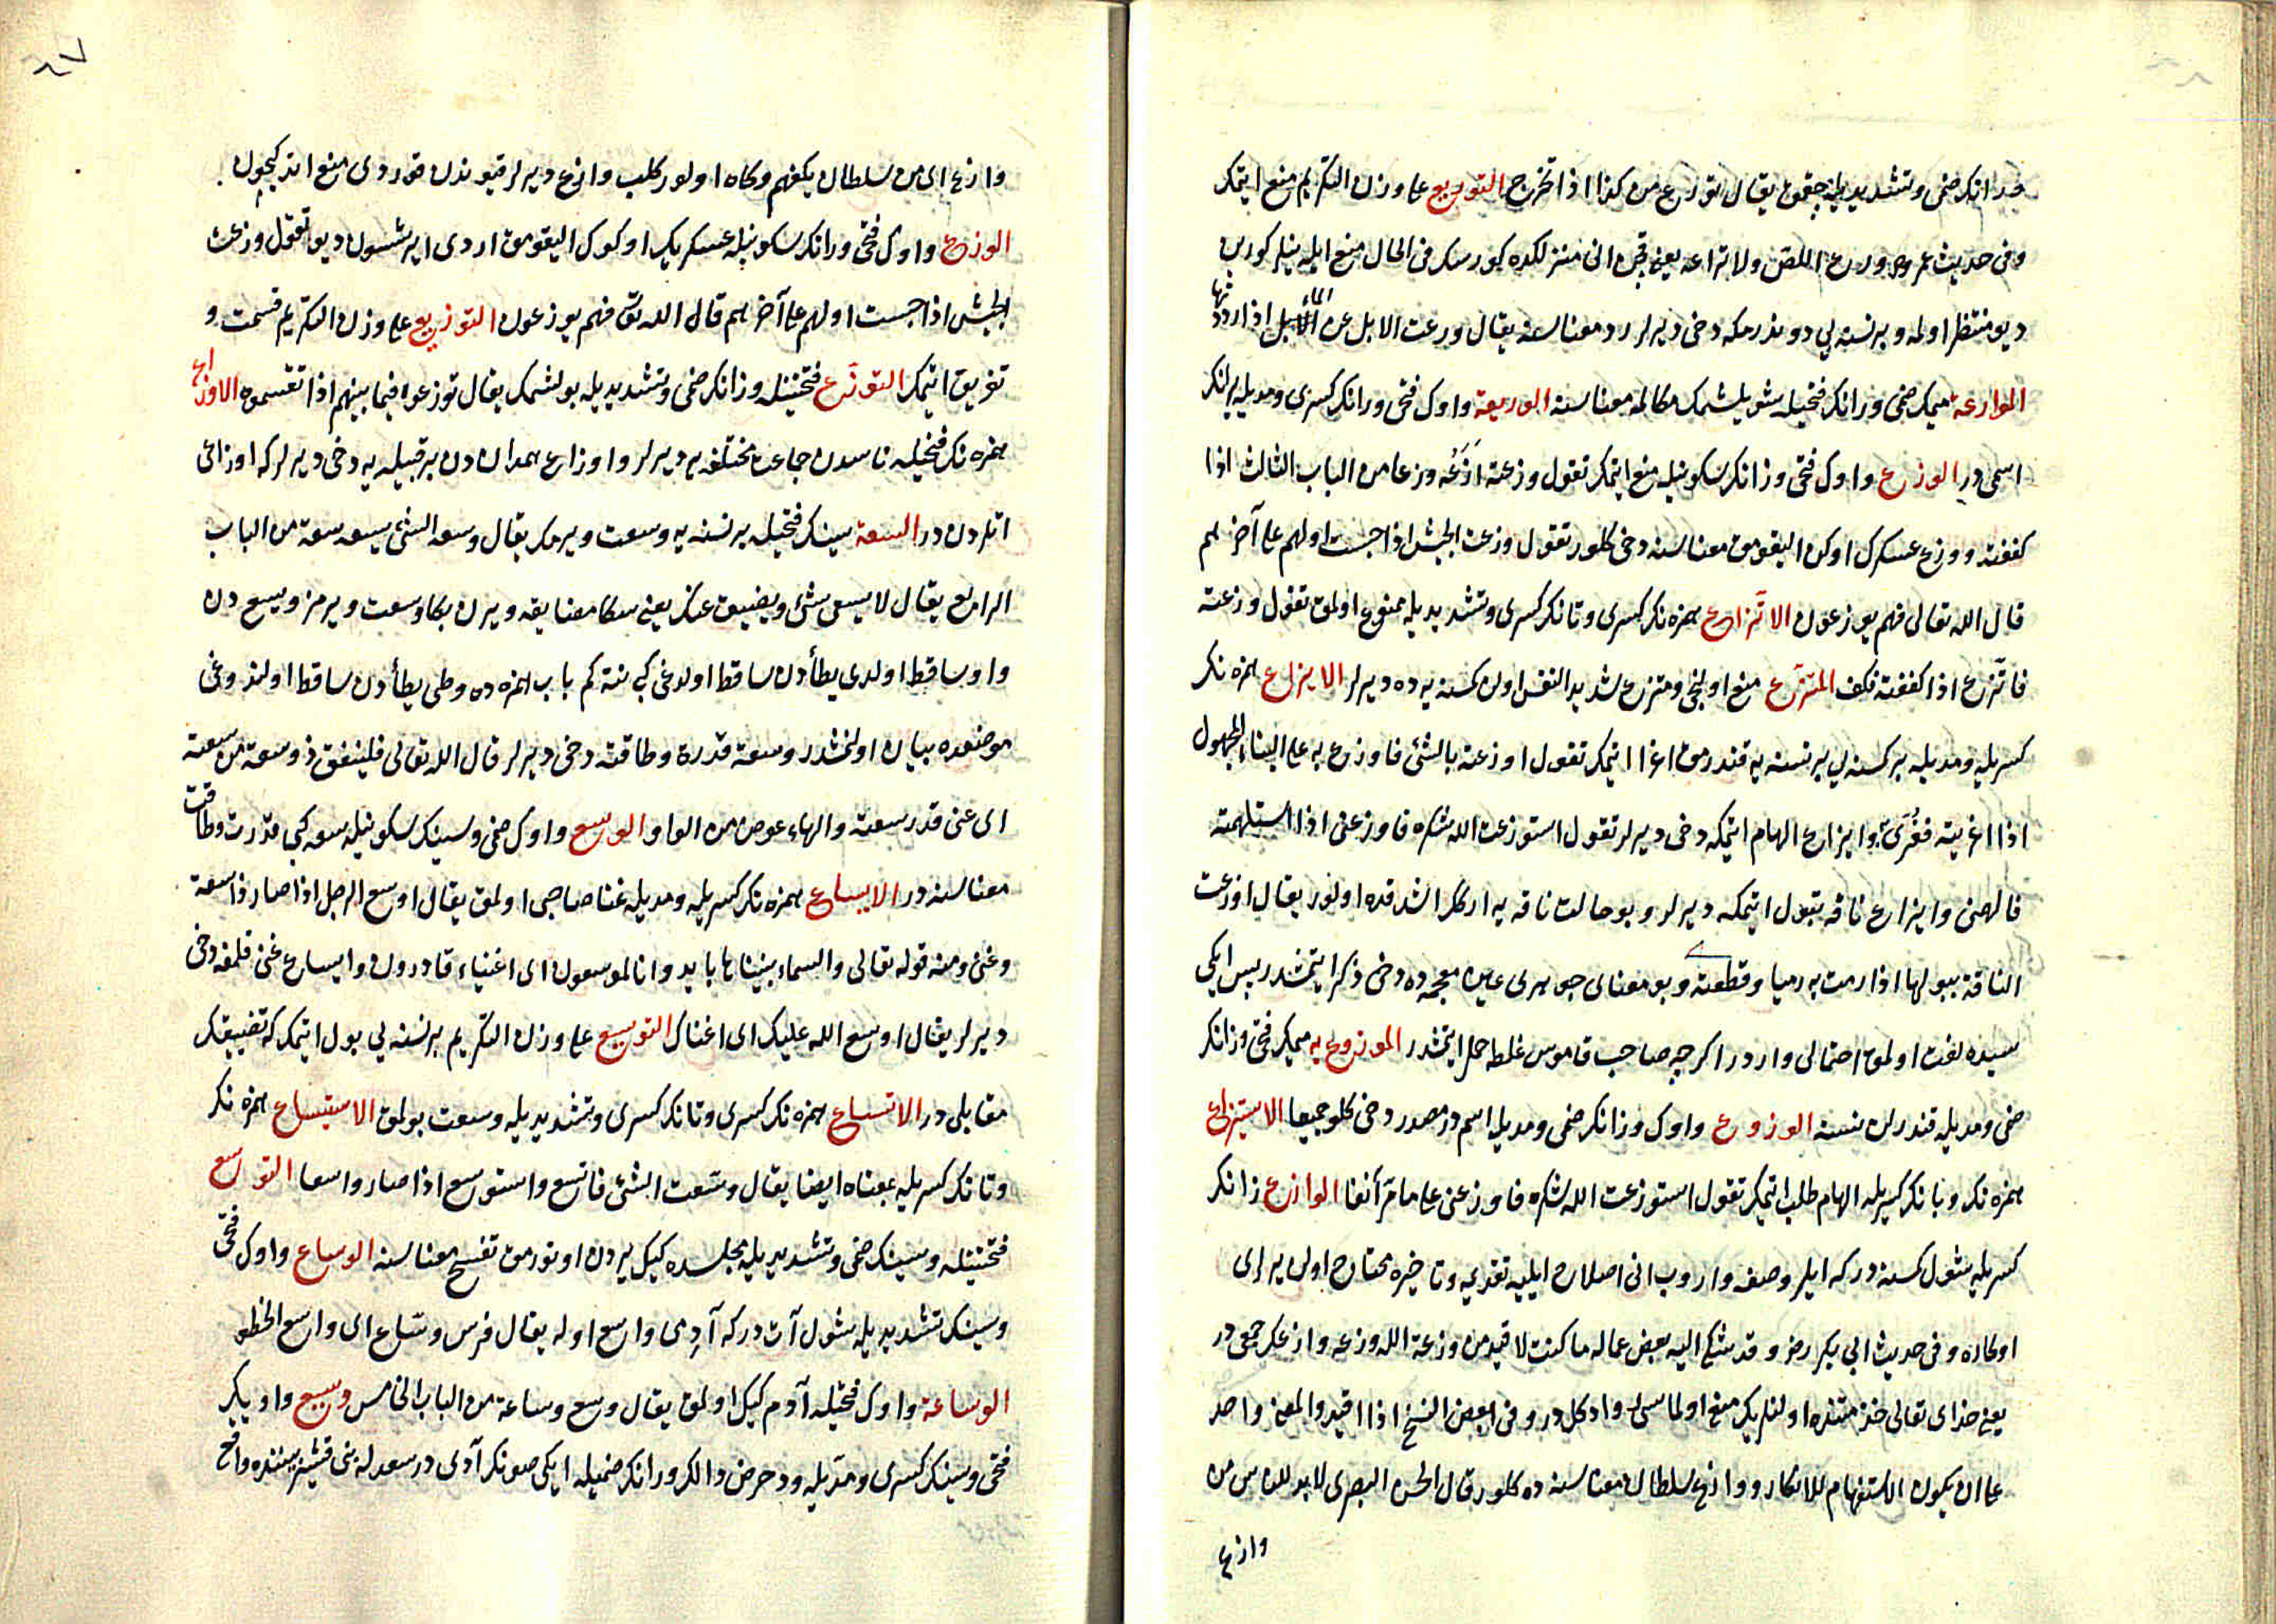 ورانك ضمى وتشديديله چقمق يقال تورع من كذا اذا تحرج التوريع على وزن التكريم منع ايتمك
وفى حديث عمر ورع اللص ولا تراعه يعنى قچن انى منزلكده كورسك فى الحال منع ايله نيلر كورسن
ديو منتظر اولمه وبر نسنه يى دوندرمكه دخى ديرلر رد معناسنه يقال ورعت الابل عن الماء اذا رددتها
الموارعة ميمك ضمى ورانك فتحيله سويلشمك مكالمه معناسنه الوريعة واوك فتحى ورانك كسرى ومديله بر انك
اسمى در الوزع واوك فتحى وزانك سكونيله منع ايتمك تقول وزعته ازعه وزعا من الباب الثالث اذا
كففته ووزع عسكرك اوكن اليقومق معناسنه دخى كلور تقول وزعت الجيش اذا حبست اولهم على آخرهم
قال الله تعالى فهم يوزعون الاتزاع همزه نك كسرى وتانك كسرى وتشديديله ممنوع اولمق تقول وزعته
فاتزع اذا كففته فكف المتزع منع اولنجى ومتزع شديد النفس اولن كمسنه يه ده ديرلر الايزاع همزه نك
كسريله ومديله بر كمسنه يى بر نسنه يه قندرمق اغرا ايتمك تقول اوزعته بالشئ فاوزع به على البناء المجهول
اذا اغريته فغرى وايزاع الهام ايتمكه دخى ديرلر تقول استوزعت الله شكره فاوزعنى اذا استلهمته
فالهمنى وايزاع ناقه بتبول ايتمكه ديرلر وبو حالت ناقه يه اركك اشدقده اولور يقال اوزعت
الناقة ببولها اذا رمت به رميا وقطعته وبو معناى جوهرى عين معجمه ده دخى ذكر ايتمشدر پس ايكى
سيده لغت اولمق احتمالى واردر اكرچه صاحب قاموس غلطه حمل ايتمشدر الموزوع به ميمك فتحى وزانك
ضمى ومديله قندرلن نسنه الوزوع واوك وزانك ضمى ومديله اسمدر مصدر دخى كلور جميعا الاستيزاع
همزه نك وتانك كسريله الهام طلب ايتمك تقول استوزعت الله شكره فاوزعنى على ما مر آنفا الوازع زانك
كسريله شول كمسنه در كه ايلرو صفه واروب انى اصلاح ايليه تقديمه وتاخيره محتاج اولن يرلرى
اوكاره وفى حديث ابى بكر رضى وقد شكى اليه بعض عماله ما كنت لاقيد من وزعة الله وزعه وازعك جمعى در
يعنى خداى تعالى حضرتنده اولنلرك منع اولماسى واد كلدر وفى بعض النسخ اذا اقيد والمعنى واحد
على ان يكون الاستفهام للانكار ووازع سلطان معناسنه ده كلور قال الحسن البصرى لا بد للناس من
وازع
وازع اى من سلطان يكفهم وكاه اولور كلب وازع ديرلر قيوندن قوردى منع اتدكيچون
الوزع واوك فتحى ورانك سكونيله عسكريك اوكون اليقومق اردى ايرشسون ديو تقول وزعت
الجيش اذا حبست اولهم على آخرهم قال الله تعالى فهم يوزعون التوزيع على وزن التكريم قسمت و
تفريق ايتمك التوزع فتحتينله وزانك ضمى وتشديديله بولشمك يقال توزعوه فيما بينهم اذا تقسموه الاوزاع
همزه نك فتحيله ناسدن جماعت مختلفه يه ديرلر واوزاع همداندن بر قبيله يه دخى ديرلر كه اوزاعى
انلردن در السعة سينك فتحيله بر نسنه يه وسعت ويرمك يقال وسعه الشئ يسعه سعة من الباب
الرابع يقال لا يسعنى شئ ويضيق عنك يعنى سكا مضايقه ويرن بكا وسعت ويرمز ويسع دن
واو ساقط اولدى يطأ دن ساقط اولدغى كبى نته كم باب همزه ده وطى يطأ دن ساقط اولندوغى
موضعده بيان اولنمشدر وسعت قدرة وطاقته دخى ديرلر قال الله تعالى فلينفق ذو سعة من سعته
اى على قدر سعته والهاء عوض من الواو الوسع واوك ضمى وسينك سكونيله سعه كبى قدرت وطاقت
معناسنه در الايساع همزه نك كسريله ومديله غنا صاحبى اولمق يقال اوسع الرجل اذا صار ذا سعة
وغنى ومنه قوله تعالى والسماء بنيناها بايد وانا لموسعون اى اغنياء قادرون وايساع غنى قلمغه دخى
ديرلر يقال اوسع الله عليك اى اغناك التوسيع على وزن التكريم بر نسنه يى بول ايتمك كه تضييقك
مقابلى در الاتساع همزه نك كسرى وتانك كسرى وتشديديله وسعت بولمق الاستيساع همزه نك
وتانك كسريله بمعناه ايضا يقال وسّعت الشئ فاتسع واستوسع اذا صار واسعا التوسع
فتحتينله وسينك ضمى وتشديديله مجلسده كيك يردن اوتورمق تفسح معناسنه الوساع واوك فتحى
وسينك تشديديله شول آت در كه آدمى واسع اوله يقال فرس وسّاع اى واسع الخطو
الوساعة واوك فتحيله آدم كيك اولمق يقال وسع وساعة من الباب الخامس وسيع واويك
فتحى وسينك كسرى ومديله ودحرض دالك ورانك ضميله ايكى صونك آدى در سعد له بنى قشير بيننده واقع